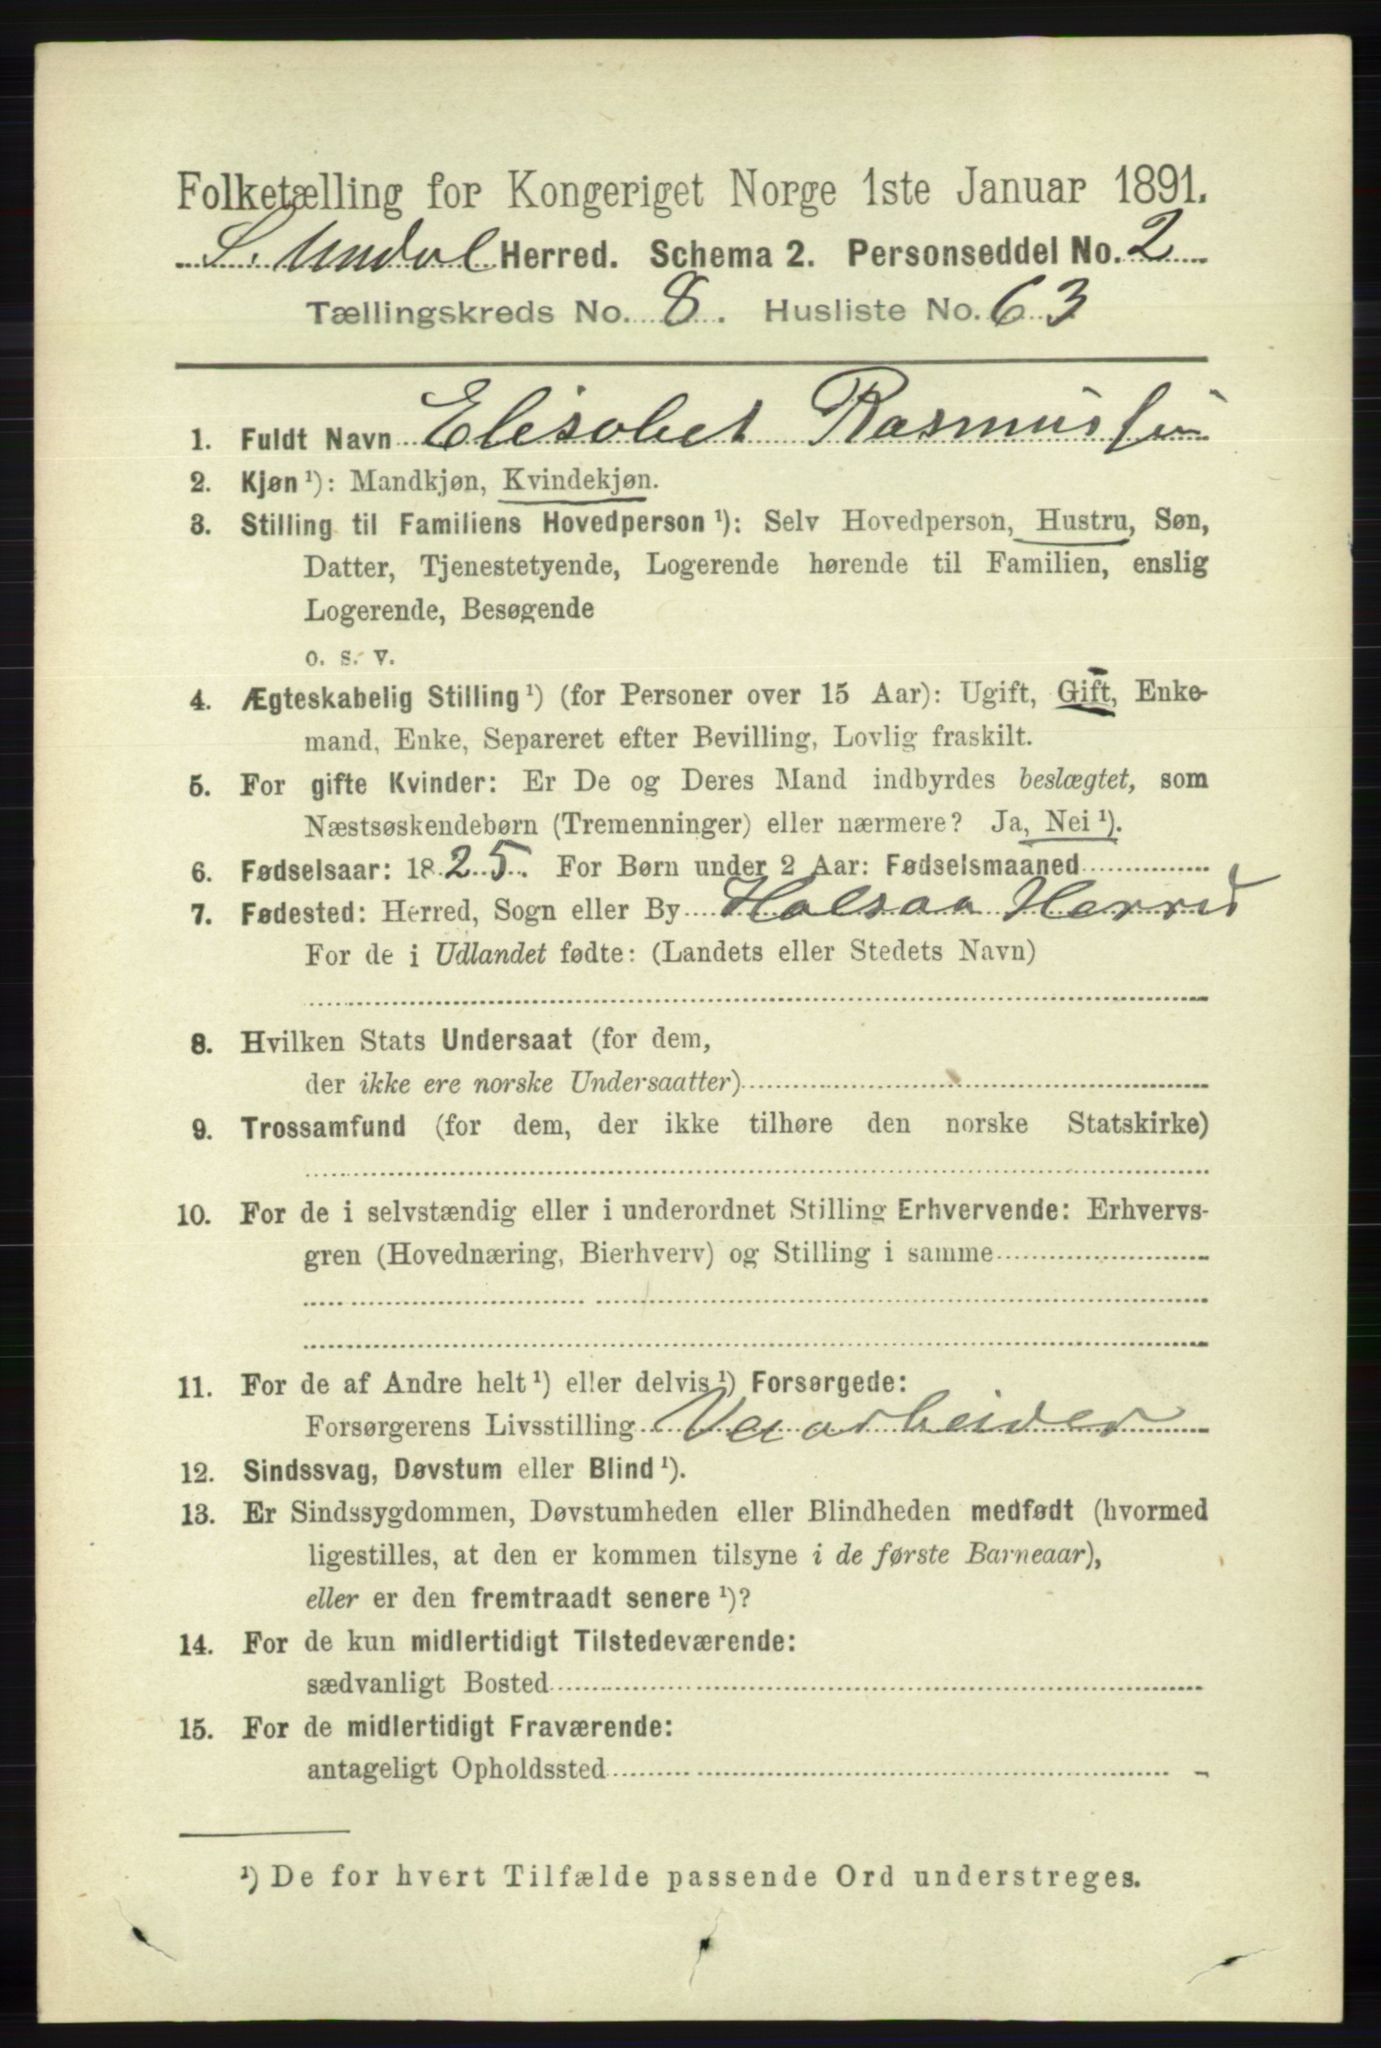 Folketælling for Kongeriget Norge 1ste Januar 1891.
S. Undal Herred. Schema 2. Personseddel No. 2
Tællingskreds No. 8. Husliste No. 63
1. Fuldt Navn Elisabet Rasmussen
2. Kjøn ¹): Mandkjøn, Kvindekjøn.
3. Stilling til Familiens Hovedperson ¹): Selv Hovedperson, Hustru, Søn,
Datter, Tjenestetyende, Logerende hørende til Familien, enslig
Logerende, Besøgende
o. s. v.
4. Ægteskabelig Stilling ¹) (for Personer over 15 Aar): Ugift, Gift, Enke-
mand, Enke, Separeret efter Bevilling, Lovlig fraskilt.
5. For gifte Kvinder: Er De og Deres Mand indbyrdes beslægtet, som
Næstsøskendebørn (Tremenninger) eller nærmere? Ja, Nei ¹).
6. Fødselsaar: 1825. For Børn under 2 Aar: Fødselsmaaned
7. Fødested: Herred, Sogn eller By Halsaa Herred
For de i Udlandet fødte: (Landets eller Stedets Navn)
8. Hvilken Stats Undersaat (for dem,
der ikke ere norske Undersaatter)
9. Trossamfund (for dem, der ikke tilhøre den norske Statskirke)
10. For de i selvstændig eller i underordnet Stilling Erhvervende: Erhvervs-
gren (Hovednæring, Bierhverv) og Stilling i samme
11. For de af Andre helt ¹) eller delvis ¹) Forsørgede:
Forsørgerens Livsstilling Veiarbeider
12. Sindssvag, Døvstum eller Blind ¹).
13. Er Sindssygdommen, Døvstumheden eller Blindheden medfødt (hvormed
ligestilles, at den er kommen tilsyne i de første Barneaar),
eller er den fremtraadt senere ¹)?
14. For de kun midlertidigt Tilstedeværende:
sædvanligt Bosted
15. For de midlertidigt Fraværende:
antageligt Opholdssted
¹) De for hvert Tilfælde passende Ord understreges.